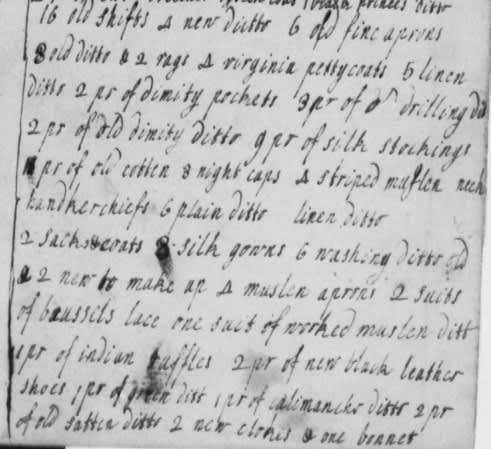 princes ditto
16 old shifts 4 new ditto 6 old fine aprons
8 old ditto & 2 rags 4 virginia pettycoats 5 linen
ditto 2 pr of dimity pockets 3 pr of drilling
2 pr of old dimity ditto 9 pr of silk stockings
pr of old cotten 8 night caps 4 striped muslen neck
handkerchiefs 6 plain ditto linen ditto
2 sacks & coats 8 silk gowns 6 washing ditto old
& 2 new to make up 4 muslen aprons 2 suits
of brussels lace one suit of worked muslen ditt
1 pr of indian ruffles 2 pr of new black leather
shoes 1 pr of green ditt 1 pr of calimancho ditto 2 pr
of old satten ditto 2 new & one bonnet